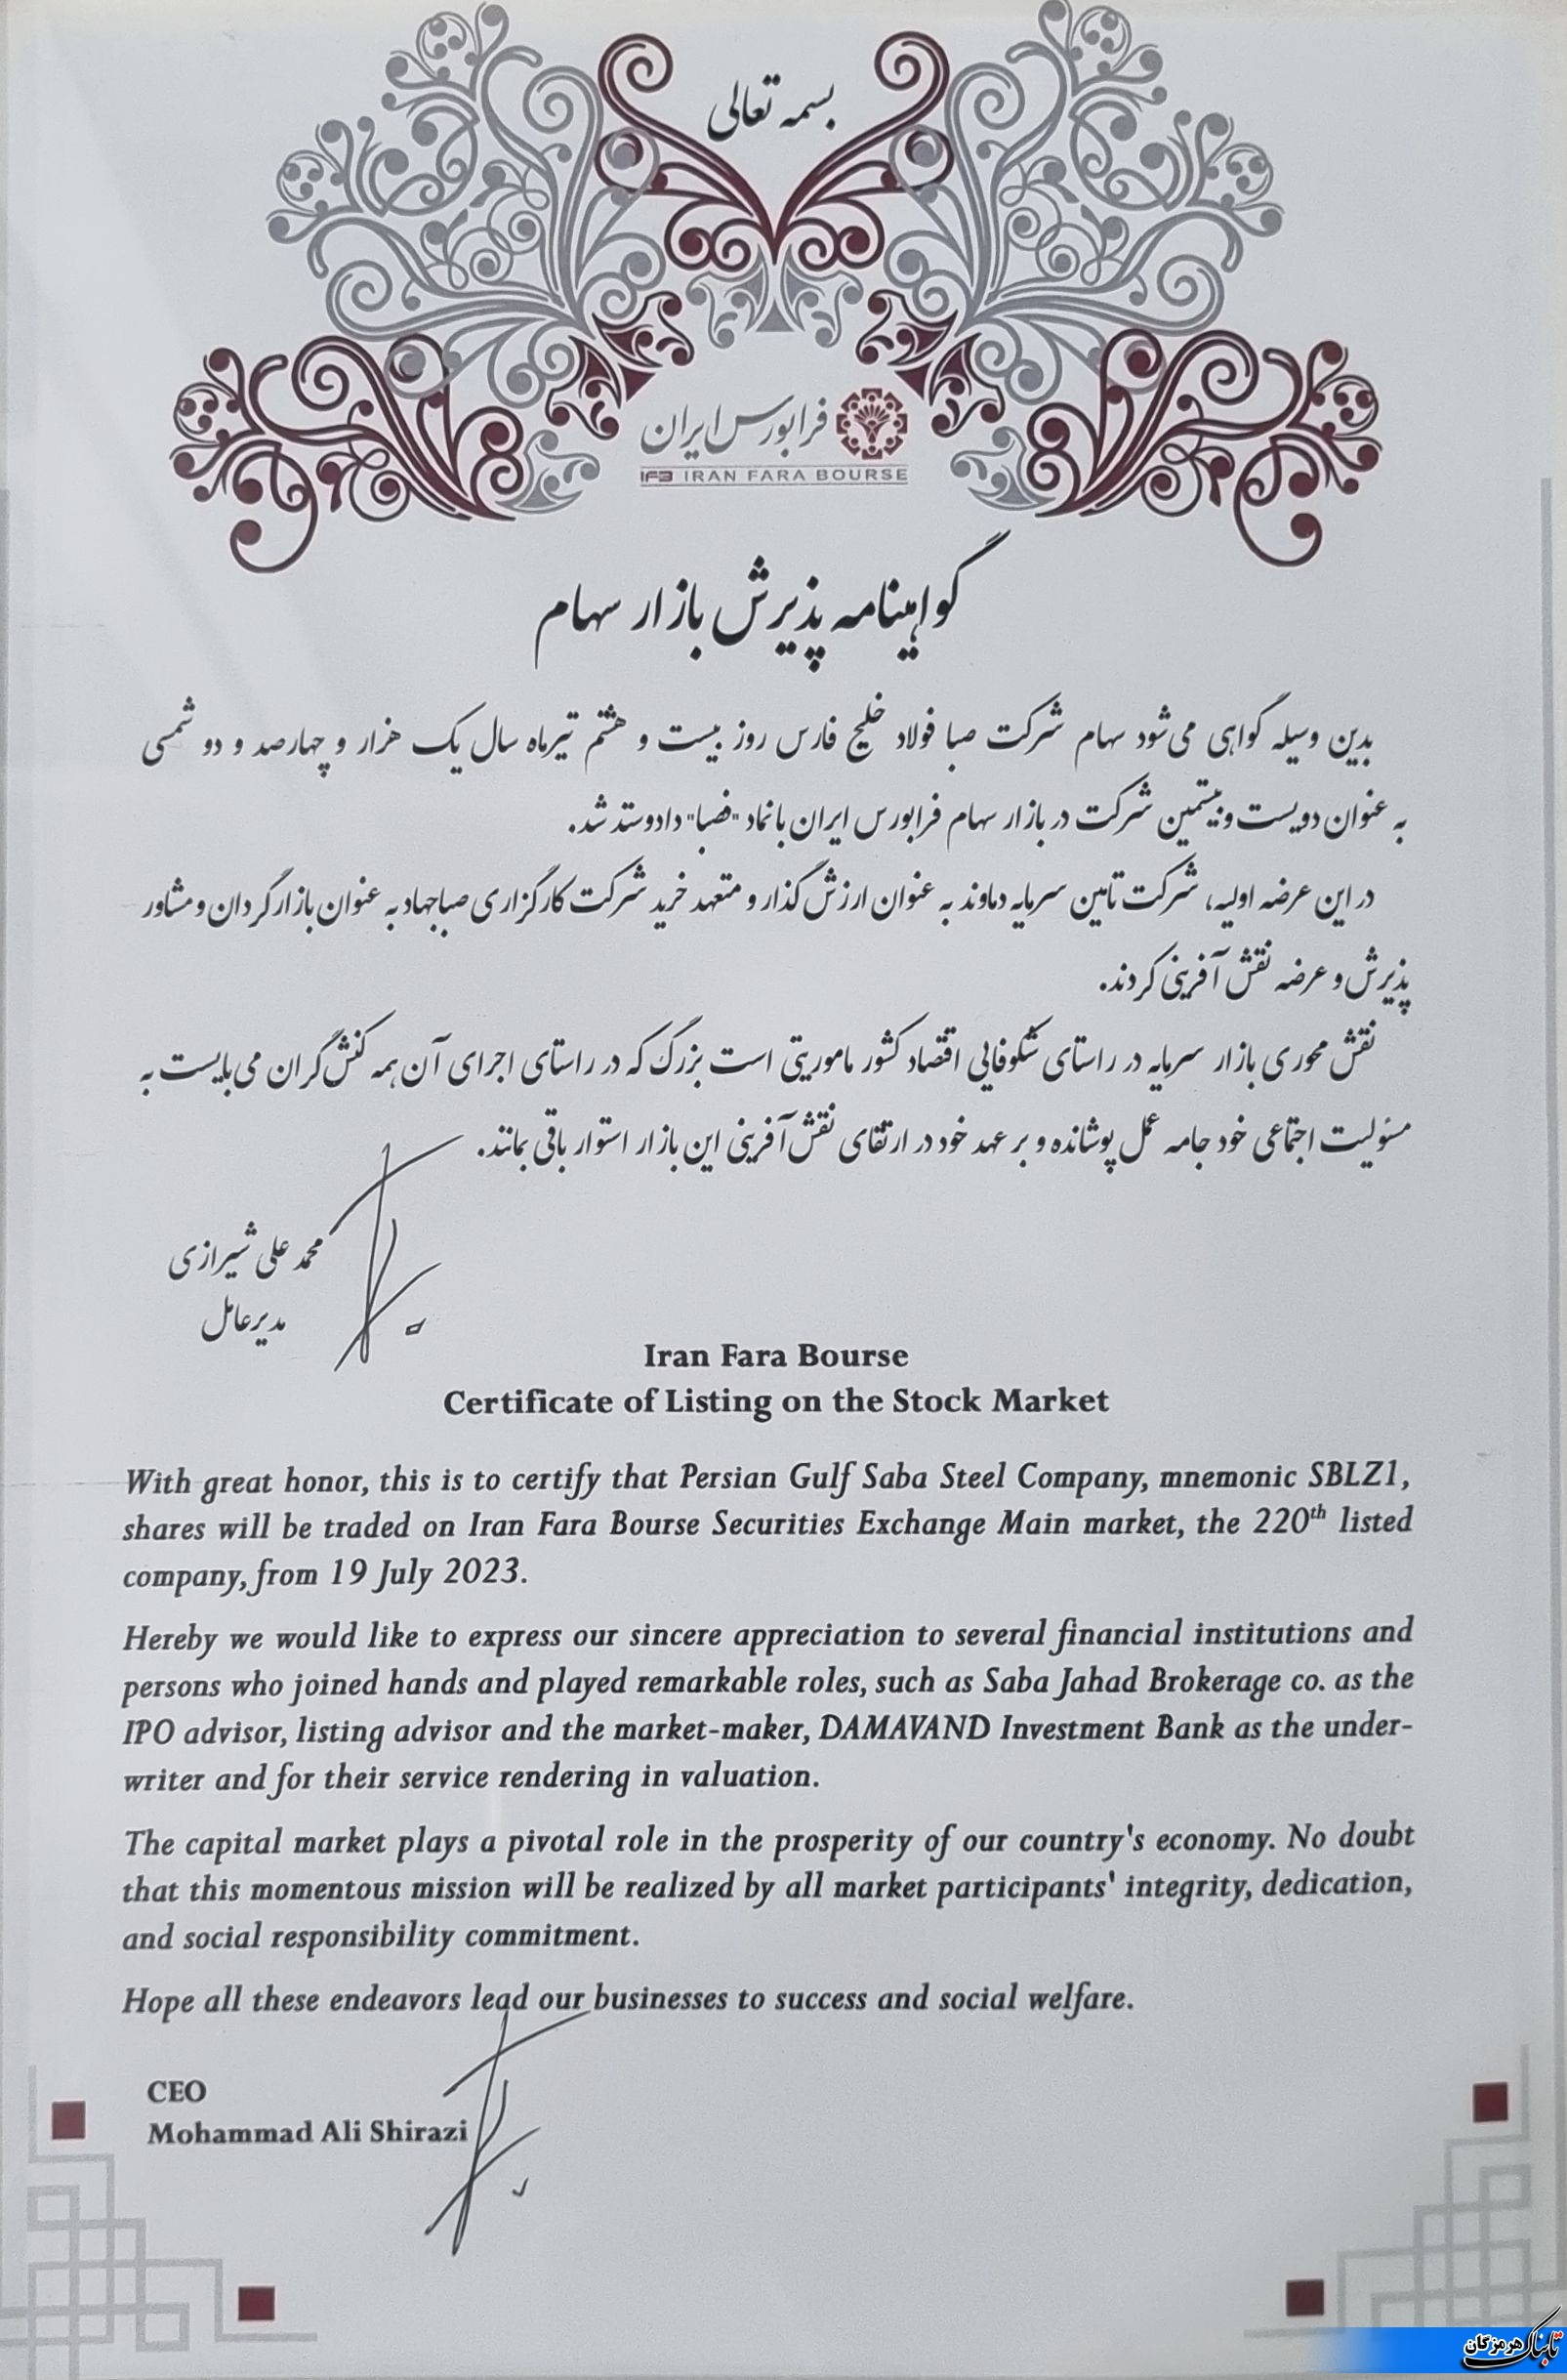 بسمه تعالی
فرابورس ایران
IFB IRAN FARA BOURSE
گواهینامه پذیرش بازار سهام
بدین وسیله گواهی می‌شود سهام شرکت صبا فولاد خلیج فارس روز بیست و هشتم تیرماه سال یک هزار و چهارصد و دو شمسی
به عنوان دویست و بیستمین شرکت در بازار سهام فرابورس ایران با نماد "فصبا" دادوستد شد.
در این عرضه اولیه، شرکت تامین سرمایه دماوند به عنوان ارزش گذار و متعهد خرید شرکت کارگزاری صباجهاد به عنوان بازارگردان و مشاور
پذیرش و عرضه نقش آفرینی کردند.
نقش محوری بازار سرمایه در راستای شکوفایی اقتصاد کشور ماموریتی است بزرگ که در راستای اجرای آن همه کنش گران می بایست به
مسئولیت اجتماعی خود جامه عمل پوشانده و بر عهد خود در ارتقای نقش آفرینی این بازار استوار باقی بمانند.
محمد علی شیرازی
مدیرعامل
Iran Fara Bourse
Certificate of Listing on the Stock Market
With great honor, this is to certify that Persian Gulf Saba Steel Company, mnemonic SBLZ1,
shares will be traded on Iran Fara Bourse Securities Exchange Main market, the 220th listed
company, from 19 July 2023.
Hereby we would like to express our sincere appreciation to several financial institutions and
persons who joined hands and played remarkable roles, such as Saba Jahad Brokerage co. as the
IPO advisor, listing advisor and the market-maker, DAMAVAND Investment Bank as the under-
writer and for their service rendering in valuation.
The capital market plays a pivotal role in the prosperity of our country's economy. No doubt
that this momentous mission will be realized by all market participants' integrity, dedication,
and social responsibility commitment.
Hope all these endeavors lead our businesses to success and social welfare.
CEO
Mohammad Ali Shirazi
تابناک هرمزگان